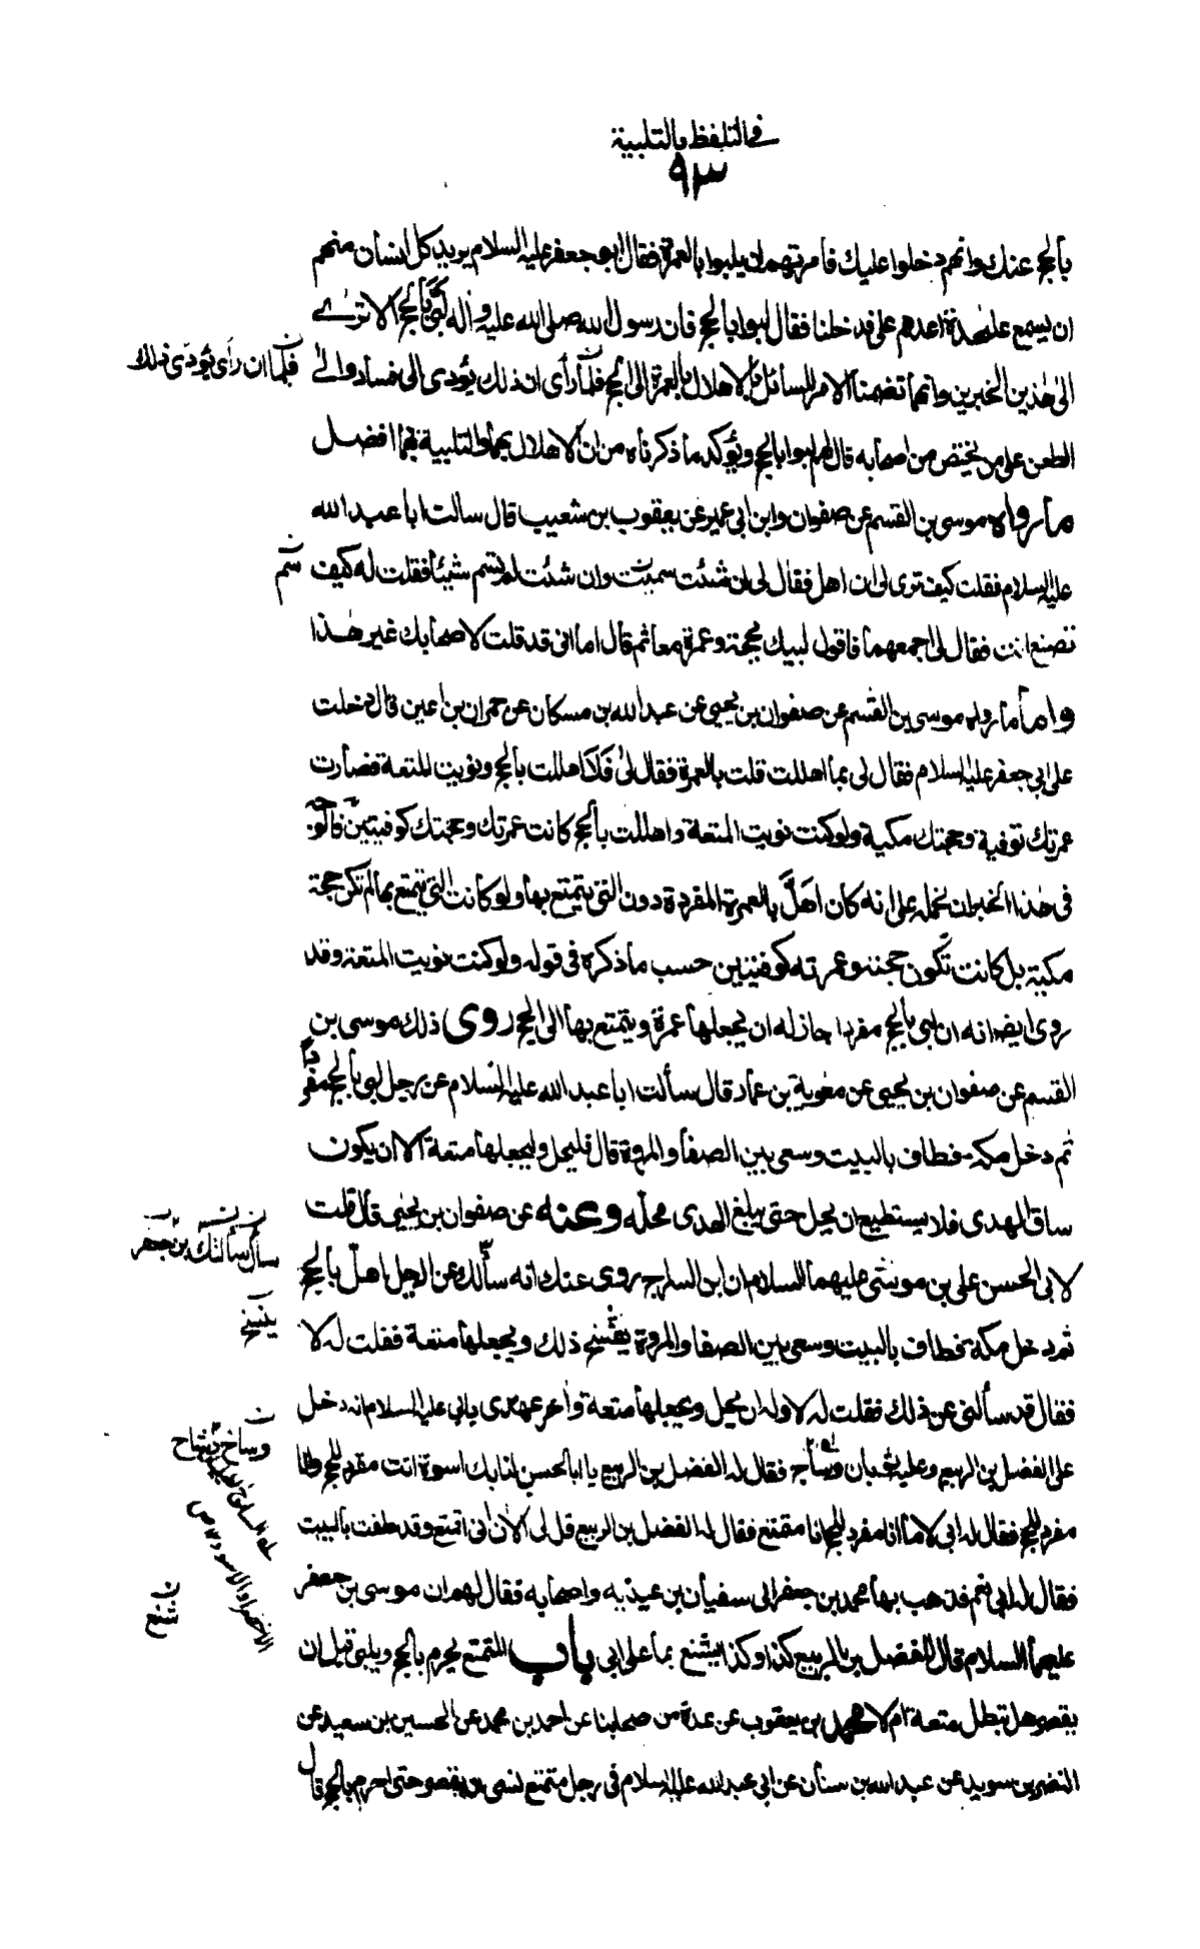 في التلفظ بالتلبية
٩٣
بالحج عنك وانهم دخلوا عليك فامرتهم ان يلبوا بالعمرة فقال ابو جعفر عليه السلام يريد كل انسان منهم
ان يسمع على حدة اعدهم على فدخلنا فقال لبوا بالحج فان رسول الله صلى الله عليه وآله لبّى بالحج الا ترى
الى هذين الخبرين وانهما تضمنا الامر للسائل بالاهلال بالعمرة الى الحج فلما رأى ان ذلك يؤدى الى فساد والى
فلما ان رأى يؤدى ذلك
الطعن على من يختص من اصحابه قال لهم لبوا بالحج ويؤكد ما ذكرناه من ان الاهلال بهما والتلبية بهما افضل
ما رواه موسى بن القسم عن صفوان وابن ابى عمير عن يعقوب بن شعيب قال سالت ابا عبد الله
عليه السلام فقلت كيف ترى لى ان اهل فقال لى ان شئت سميت وان شئت لم تسم شيئا فقلت له كيف
تصنع انت فقال لى اجمعهما فاقول لبيك بحجة وعمرة معا ثم قال اما انى قد قلت لاصحابك غير هذا
واما ما رواه موسى بن القسم عن صفوان بن يحيى عن عبد الله بن مسكان عن حمران بن اعين قال دخلت
على ابى جعفر عليه السلام فقال لى بما اهللت قلت بالعمرة فقال لى فلا اهللت بالحج ونويت المتعة فصارت
عمرتك كوفية وحجتك مكية ولو كنت نويت المتعة واهللت بالحج كانت عمرتك وحجتك كوفيتين فالوجه
فى هذا الخبر ان نحمله على انه كان اهلّ بالعمرة المفردة دون التى يتمتع بها ولو كانت التى يتمتع بها لم تكن حجة
مكية بل كانت تكون حجته وعمرته كوفيتين حسب ما ذكره فى قوله ولو كنت نويت المتعة وقد
روى ايضا انه ان لبى بالحج مفردا جاز له ان يجعلها عمرة ويتمتع بها الى الحج روى ذلك موسى بن
القسم عن صفوان بن يحيى عن معوية بن عمار قال سألت ابا عبد الله عليه السلام عن رجل لبى بالحج مفردا
ثم دخل مكة فطاف بالبيت وسعى بين الصفا والمروة قال فليحل وليجعلها متعة الا ان يكون
ساق الهدى فلا يستطيع ان يحل حتى يبلغ الهدى محله وعنه عن صفوان بن يحيى قال قلت
لابى الحسن على بن موسى عليهما السلام ان ابن السراج روى عنك انه سألك عن الرجل اهلّ بالحج
ثم دخل مكة فطاف بالبيت وسعى بين الصفا والمروة يفسخ ذلك ويجعلها متعة فقلت له لا
فقال قد سألنى عن ذلك فقلت له لا وله ان يحل ويجعلها متعة وآخر عهدى بابى عليه السلام انه دخل
على الفضل بن الربيع وعليه ثوبان وساج فقال له الفضل بن الربيع يا ابا الحسن لنا بك اسوة انت مفرد للحج وانا
مفرد للحج فقال له ابى لا ما انا مفرد للحج انا متمتع فقال له الفضل بن الربيع قل لى الآن انى اتمتع وقد طفت بالبيت
فقال له ابى نعم فذهب بها محمد بن جعفر الى سفيان بن عيينة واصحابه فقال لهم ان موسى بن جعفر
عليهما السلام قال للفضل بن الربيع كذا وكذا يشنع بها على ابى باب المتمتع يحرم بالحج ويلبى قبل ان
يقصر هل تبطل متعة ام لا محمد بن يعقوب عن عدة من اصحابنا عن احمد بن محمد عن الحسين بن سعيد عن
النضر بن سويد عن عبد الله بن سنان عن ابى عبد الله عليه السلام فى رجل متمتع نسى ان يقصر حتى احرم بالحج قال